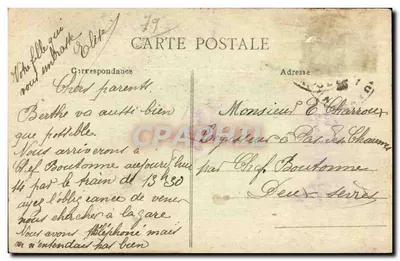 79
Votre fille qui
vous embrasse
Elise
CARTE POSTALE
Correspondance
Adresse
Chers parents,
Berthe va aussi bien
que possible.
Nous arriverons à
Chef Boutonne aujourd'hui
par le train de 13h30
ayez l'obligeance de venir
nous chercher à la gare
Nous avons téléphoné mais
on n'entendais pas bien
Monsieur E Charroux
à Pas des Chaumes
par Chef Boutonne
Deux-Sèvres